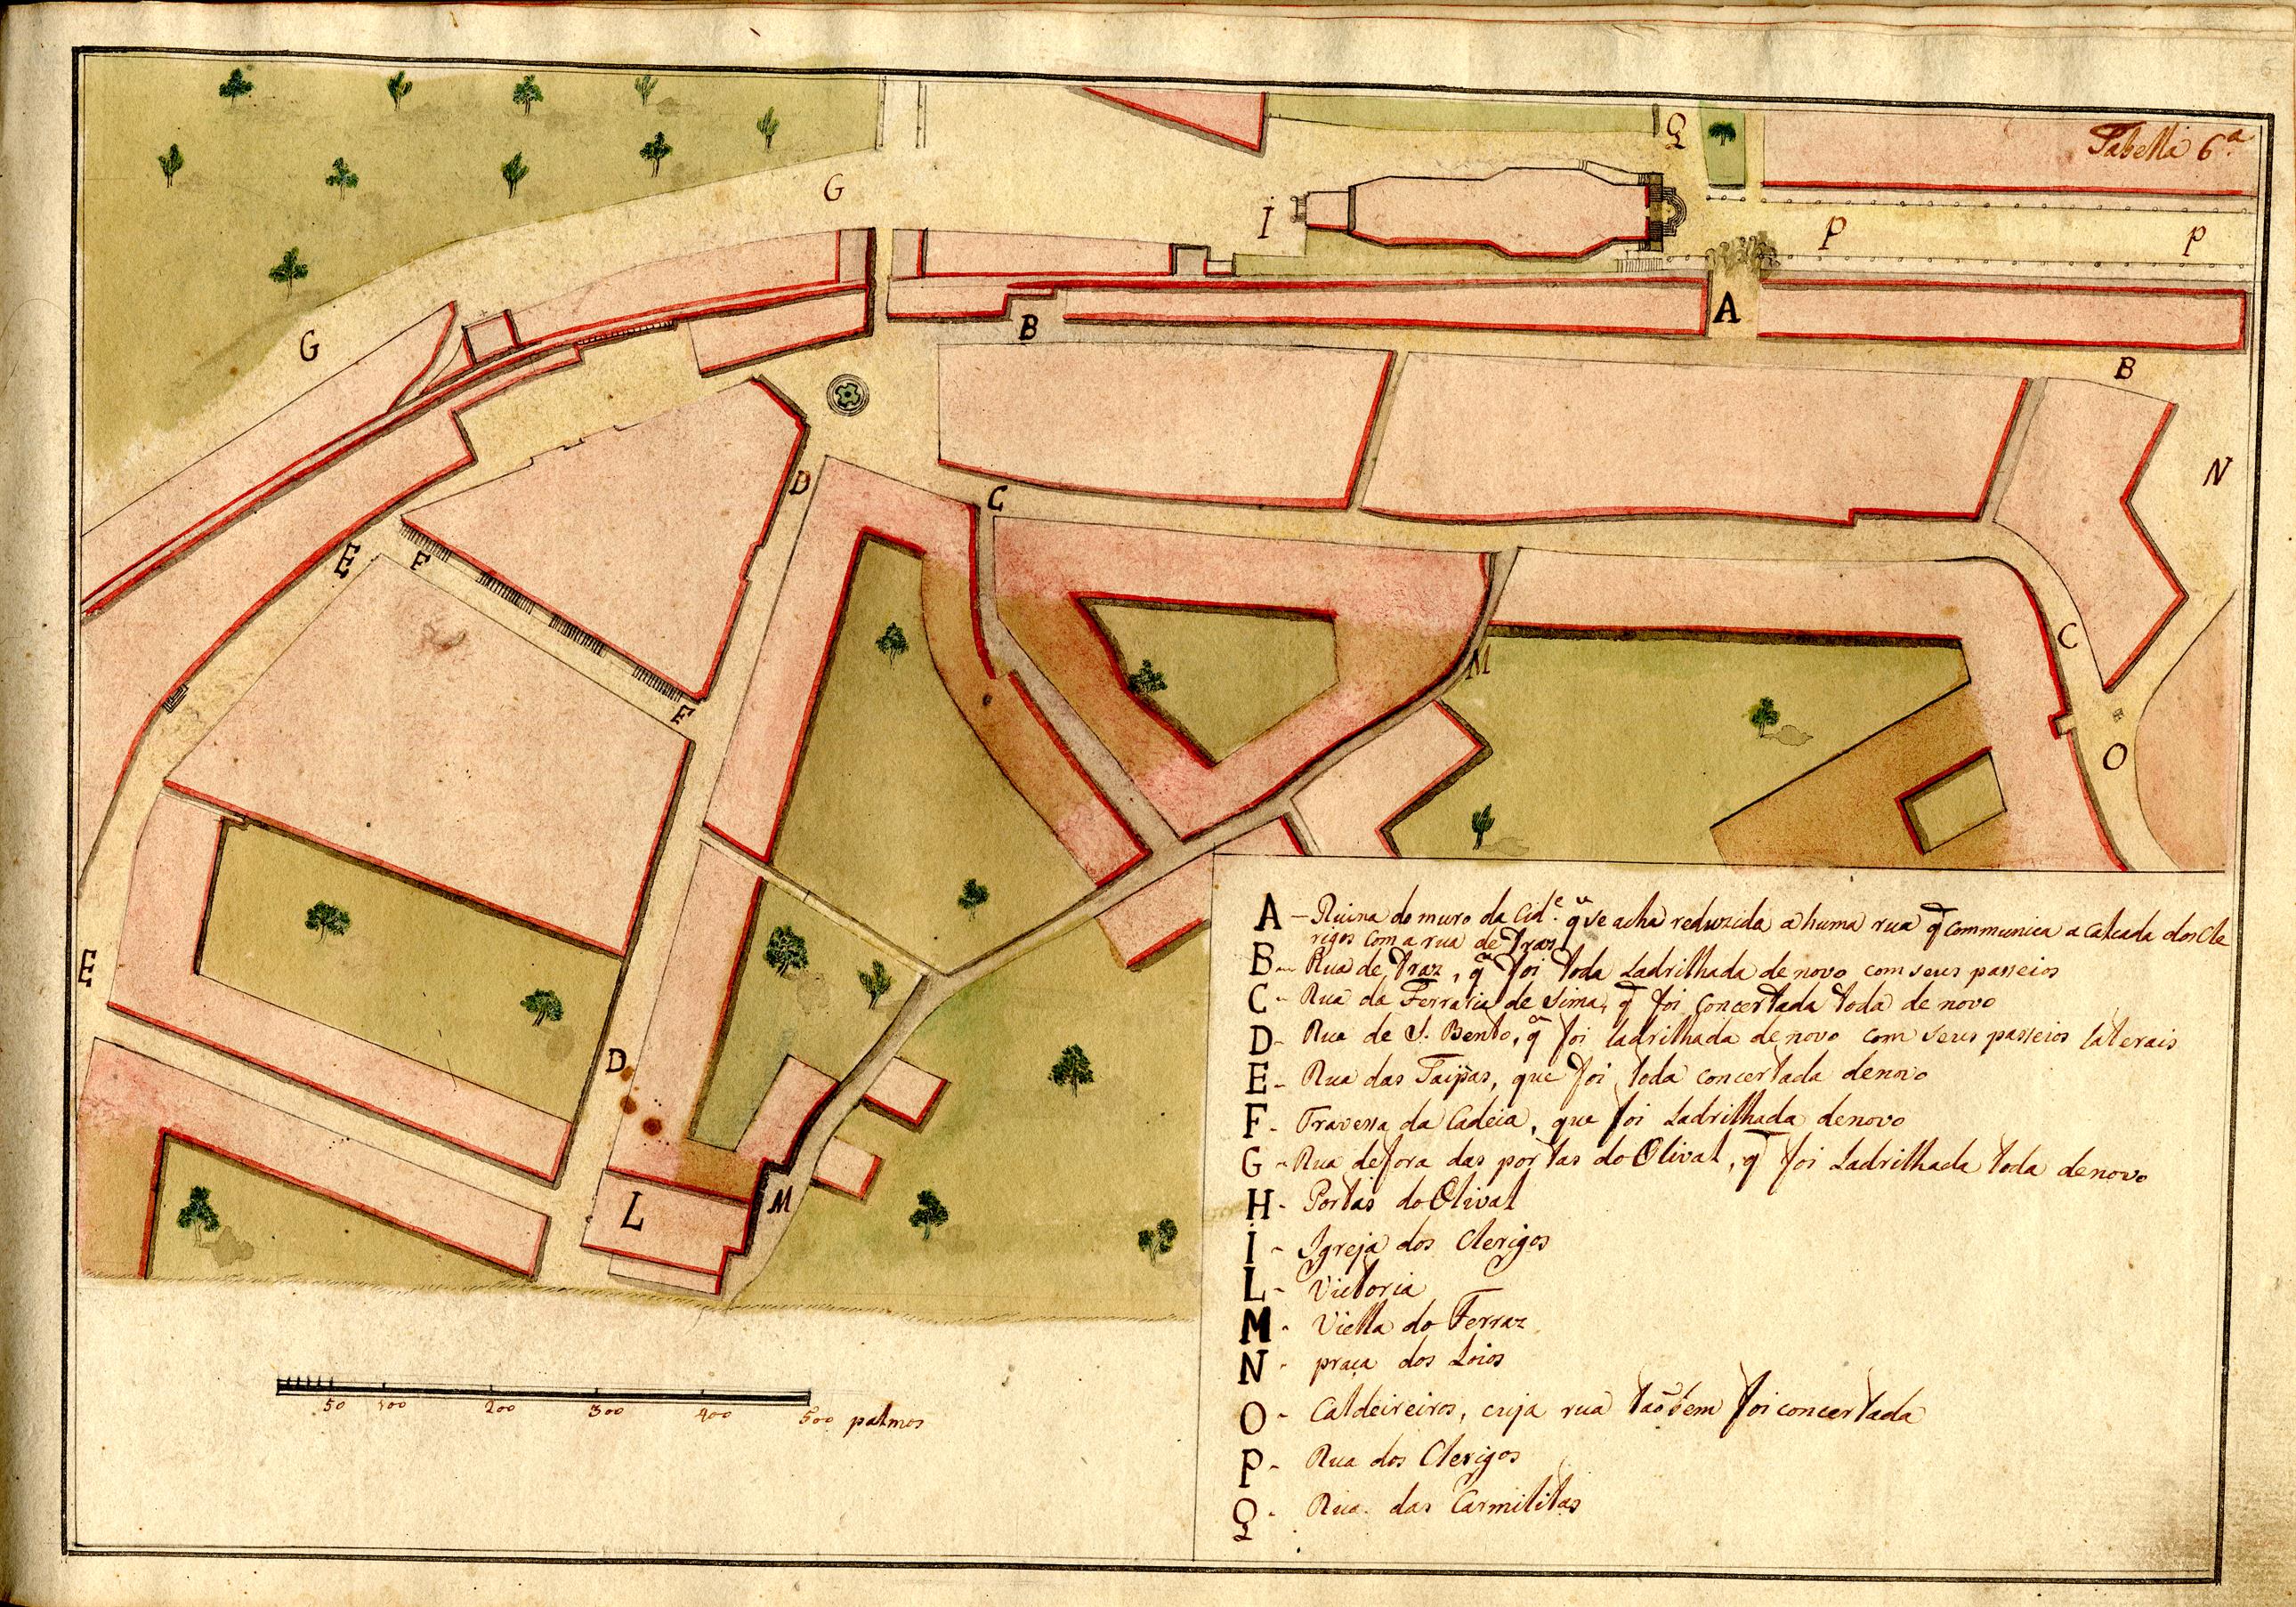 Tabella 6.ª
Q
G
I
P
P
A
G
B
B
D
C
N
E
F
C
M
F
O
E
D
L
M
A - Ruina do muro da Cid.e q̃ se acha reduzida a huma rua q̃ communica a calcada dos Cle
rigos com a rua de Tras
B - Rua de Traz, q̃ foi toda Ladrilhada de novo com seus passeios
C - Rua da Ferraria de Sima, q̃ foi concertada toda de novo
D - Rua de S. Bento, q̃ foi ladrilhada de novo com seus passeios laterais
E - Rua das Taipas, que foi toda concertada de novo
F - Travessa da Cadeia, que foi Ladrilhada de novo
G - Rua de fora das portas do Olival, q̃ foi Ladrilhada toda de novo
H - Portas do Olival
I - Igreja dos Clerigos
L - Victoria
M - Viella do Ferraz
N - praça dos Loios
O - Caldeireiros, cuja rua taõbem foi concertada
P - Rua dos Clerigos
Q - Rua das Carmilitas
50 100 200 300 400 500 palmos